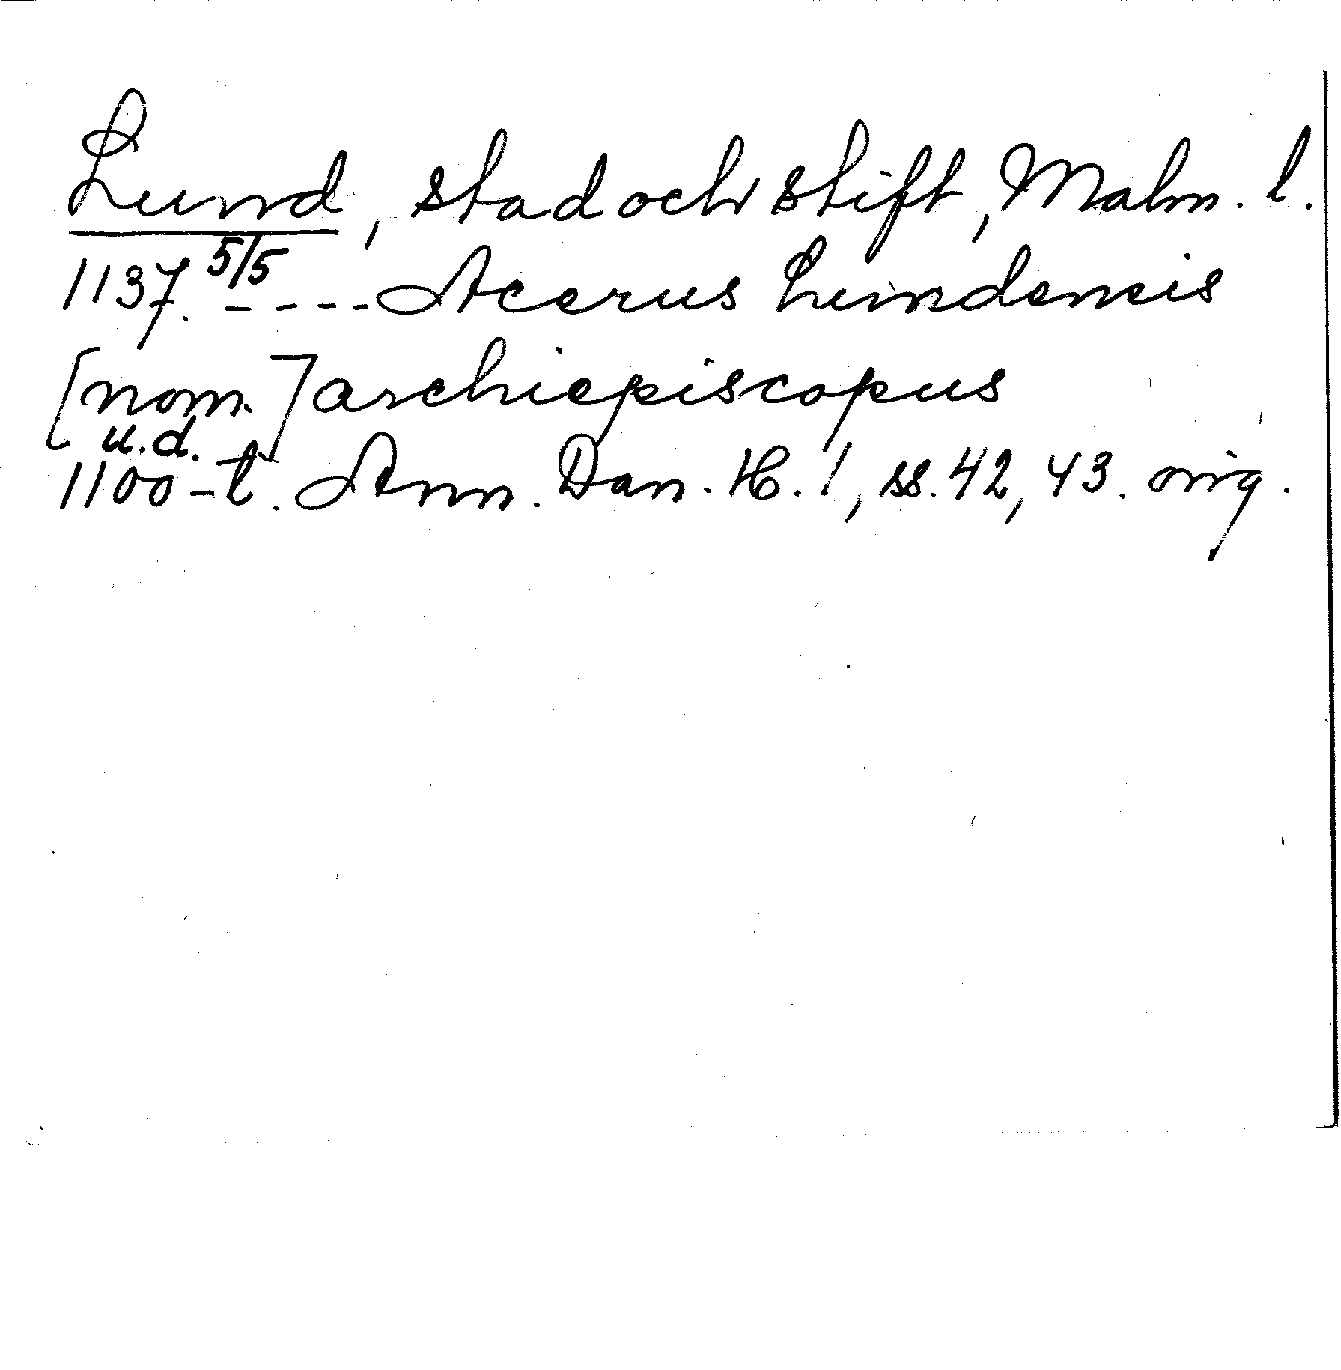 Lund, stad och stift, Malm. l.
1137. 5/5 ---- Acerus Lundensis
[nom.] archiepiscopus
u.d.
1100-t. Ann. Dan. H. 1, ss. 42, 43. orig.